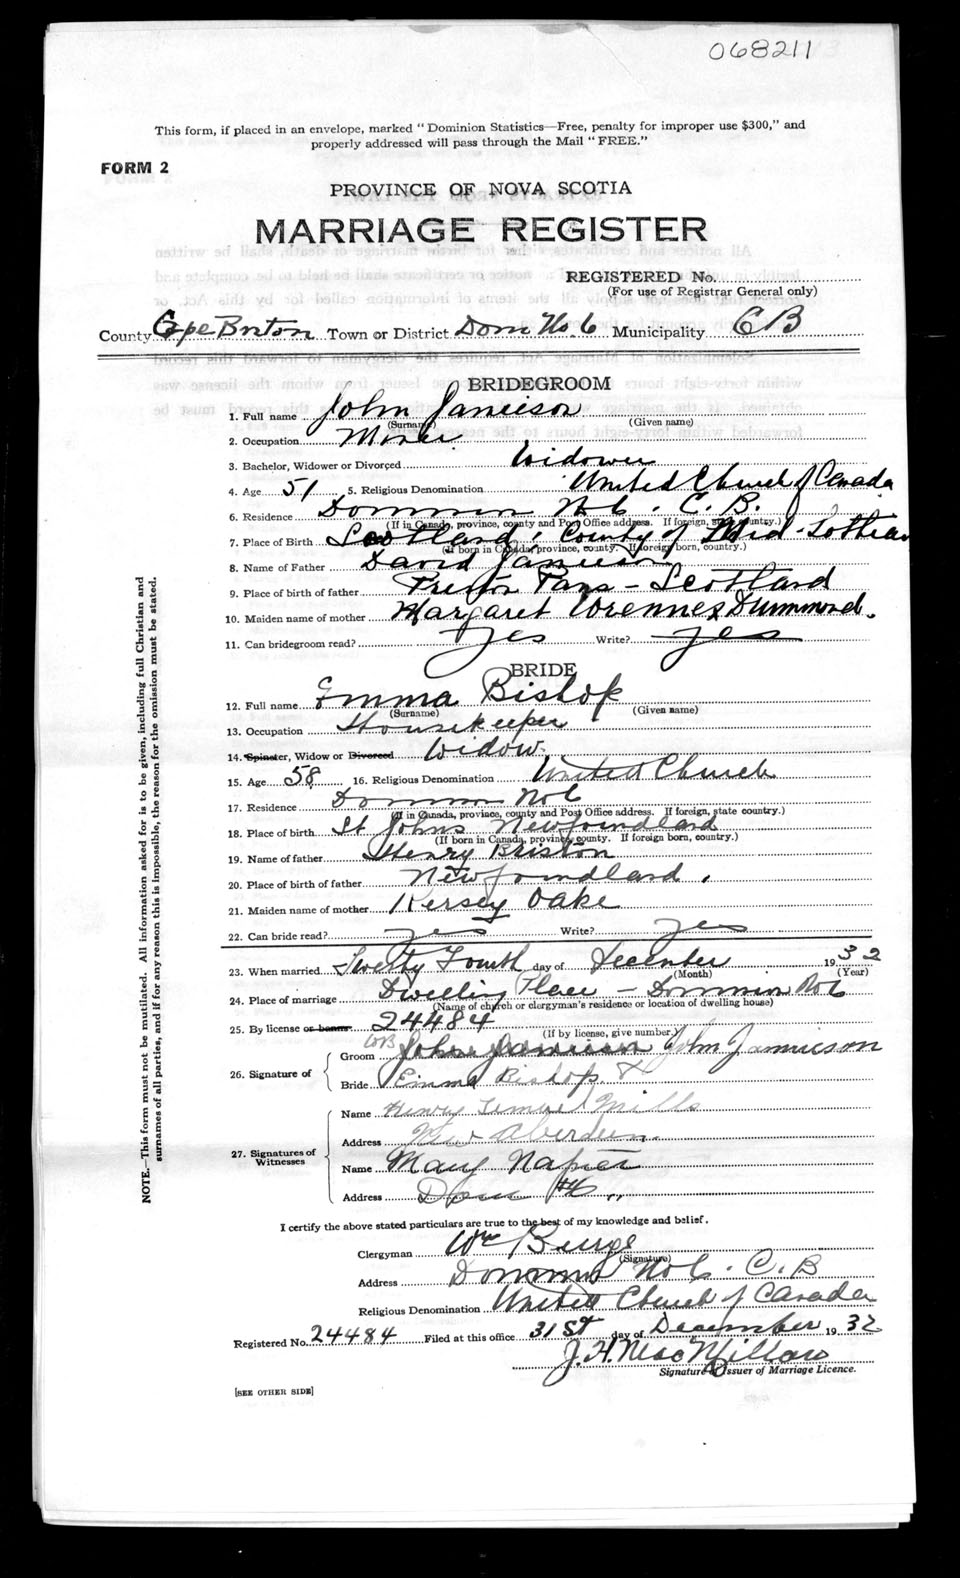 068211
This form, if placed in an envelope, marked "Dominion Statistics—Free, penalty for improper use $300," and
properly addressed will pass through the Mail "FREE."
FORM 2
PROVINCE OF NOVA SCOTIA
MARRIAGE REGISTER
REGISTERED No.
(For use of Registrar General only)
County Cape Breton Town or District Dom No 6 Municipality CB
BRIDEGROOM
1. Full name John Jamieson
(Surname) (Given name)
2. Occupation Miner
3. Bachelor, Widower or Divorced Widower
4. Age 51 5. Religious Denomination United Church of Canada
6. Residence Dominion No 6. C. B.
(If in Canada, province, county and Post Office address. If foreign, state country.)
7. Place of Birth Scotland, County of Mid-Lothian
(If born in Canada, province, county. If foreign born, country.)
8. Name of Father David Jamieson
9. Place of birth of father Preston Pans - Scotland
10. Maiden name of mother Margaret Drummond.
11. Can bridegroom read? yes Write? yes
BRIDE
12. Full name Emma Bishop
(Surname) (Given name)
13. Occupation Housekeeper
14. Spinster, Widow or Divorced Widow.
15. Age 58 16. Religious Denomination United Church
17. Residence Dominion No 6
(If in Canada, province, county and Post Office address. If foreign, state country.)
18. Place of birth St Johns Newfoundland
(If born in Canada, province, county. If foreign born, country.)
19. Name of father Henry Briston
20. Place of birth of father Newfoundland.
21. Maiden name of mother Kersey Oake
22. Can bride read? yes Write? yes
23. When married Twenty Fourth day of December 1932
(Month) (Year)
24. Place of marriage Dwelling Place - Dominion No 6
(Name of church or clergyman's residence or location of dwelling house)
25. By license or banns 24484
(If by license, give number.)
26. Signature of
Groom John Jamieson John Jamieson
Bride Emma Bishop. X
27. Signatures of Witnesses
Name Henry Lemuel Mills
Address New Aberdeen.
Name Mary Napier
Address Dom #6
I certify the above stated particulars are true to the best of my knowledge and belief.
Clergyman Wm Burge
(Signature)
Address Dominion No 6. C. B
Religious Denomination United Church of Canada
Registered No. 24484 Filed at this office 31st day of December 1932
J. H. MacMillan
Signature of Issuer of Marriage Licence.
[SEE OTHER SIDE]
NOTE.—This form must not be mutilated. All information asked for is to be given, including full Christian and
surnames of all parties, and if for any reason this is impossible, the reason for the omission must be stated.